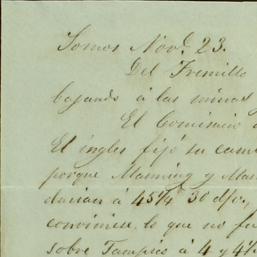 Somos Nov.e 23.
Del Fresnillo
bajando á las minas
El Comisario
El ingles fijó su cam
porque Manning y Mac
darian á 45 1/4 30 d/fo,
conviniese, lo que no fu
sobre Tampico á 4 y 4 1/2